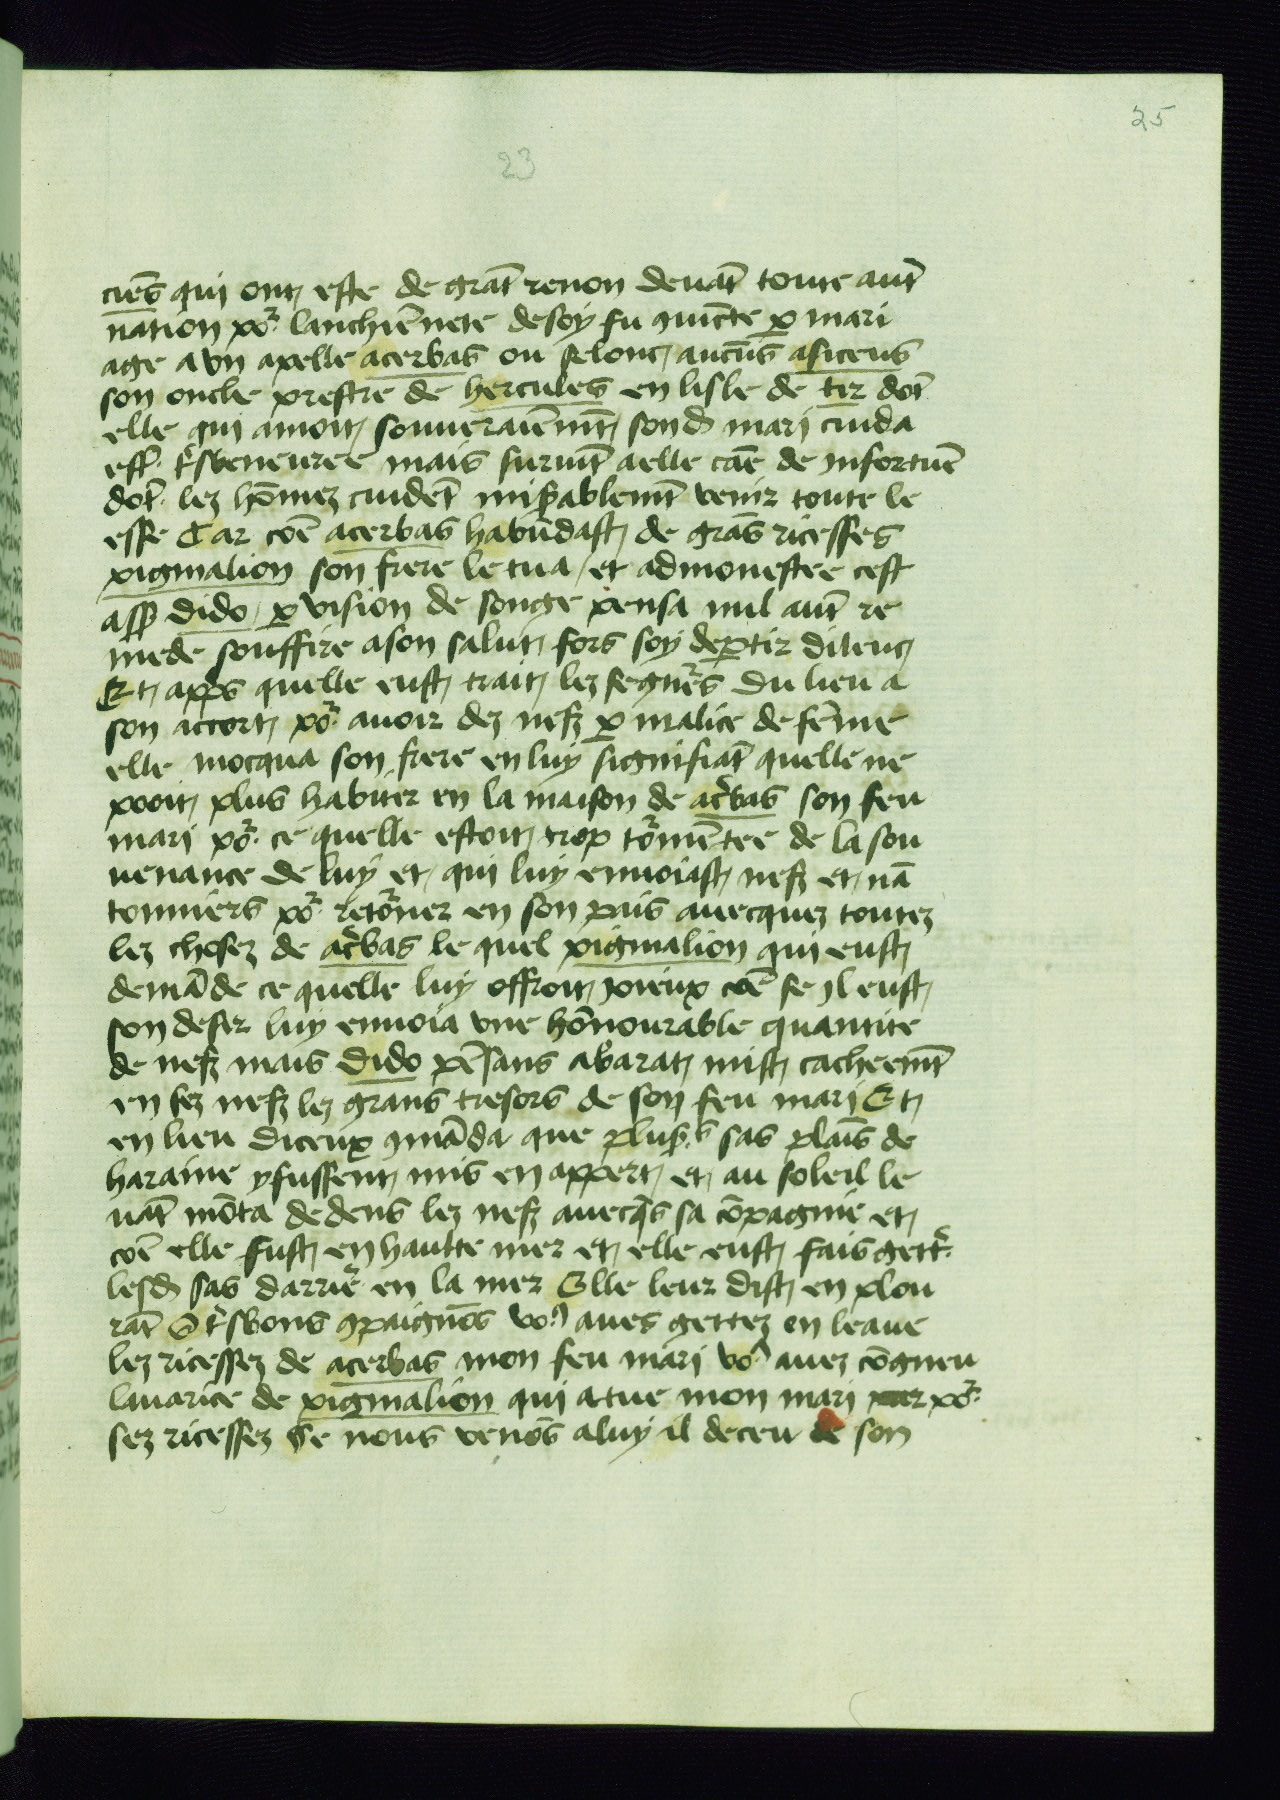 25
23
ciēs qui ont este de grāt renon deuāt toute autͬ
nation poͬ lanchiēnete de soy fu iuīcte ꝑ mari
age a vn apelle acerbas ou selonc aucūs asiceus
son oncle prestre de hercules en lisle de tir dōt
elle qui amoit souuerainēmt̄ sond̄ mari cuida
esſ tͬsbeneuree mais suruīt a elle cāe de infortūe
dōt lez hōmez cuidēt miẜablemt̄ venir toute le
esse Car cōe acerbas habūdast de grās ricesses
pigmalion son frere le tua / et admonestee cest
assꝑ dido / ꝑ vision de songe pensa nul autͬ re
mede souffire a son salut fors soy deꝑtir dilenc
Et app̄s quelle eust trait lez segnrͬs du lieu a
son accort poͬ auoir dez nefz ꝑ malice de fēme
elle mocqua son frere en luy signifiāt quelle ne
pooit plus habiter en la maison de ac̄bas son feu
mari poͬ ce quelle estoit trop toͬmētee de la sou
uenance de luy et qui luy enuoiast nefz et nā
tonniers poͬ retoͬner en son pais auecquez toutez
lez chosez de ac̄bas le quel pigmalion qui eust
demāde ce quelle luy offroit ioieux cōe se il eust
son desir luy enuoia vne hōnourable quantite
de nefz mais dido pēsans abarat mist cacheemt̄
en sez nefz lez grans tresors de son feu mari Et
en lieu diceux ꝯmāda que plusͬs sas plaīs de
haraine y fussent mis en appert et au soleil le
uāt mōta dedens lez nefz auecq̄s sa cōpagnie et
cōe elle fust en haulte mer et elle eust fais gettͬ
lesd̄ sas darriͤ en la mer Elle leur dist en plou
rāt O tͬsbons ꝯpaignōs voꝰ aues gettez en leaue
lez ricessez de acerbas mon feu mari voꝰ auez cōgneu
lauarice de pigmalion qui a tue mon mari poͬ
sez ricessez Se nous venōs a luy il deceu de son